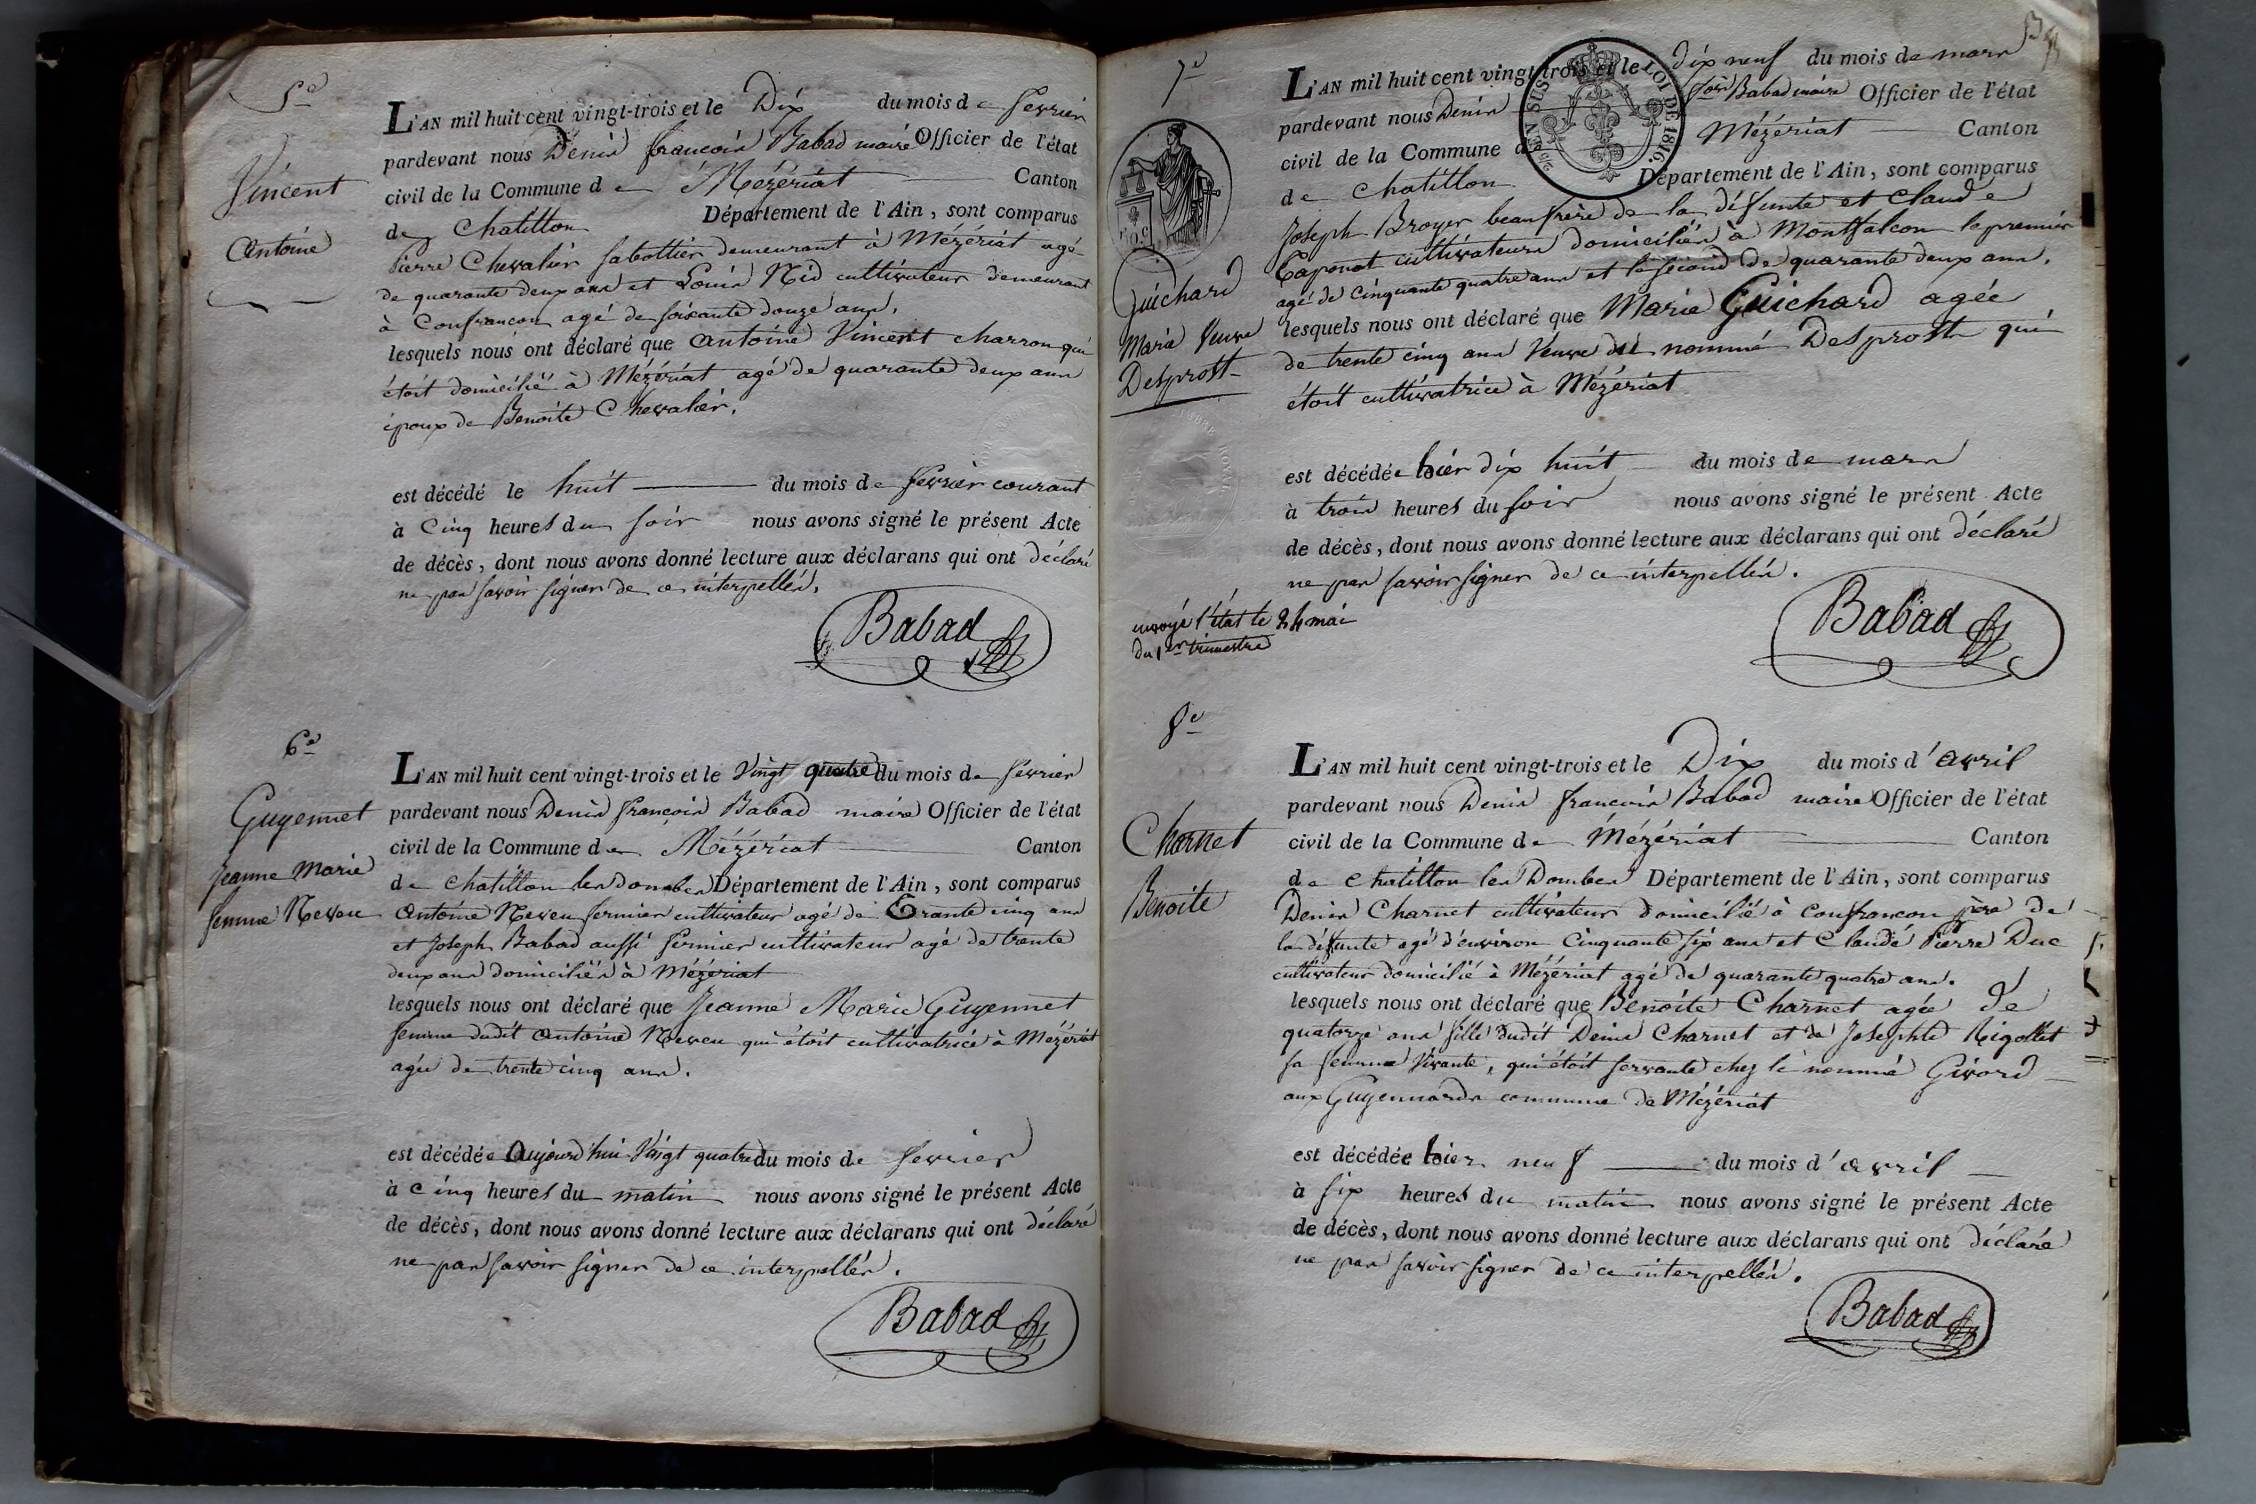 5e
Vincent
Antoine
L'AN mil huit cent vingt-trois et le Dix du mois de fevrier
pardevant nous Denis francois Babad maire Officier de l'état
civil de la Commune de Mézériat Canton
de Chatillon Département de l'Ain, sont comparus
Pierre Chevalier sabottier demeurant à Mézériat agé
de quarante deux ans et Louis Nid cultivateur demeurant
à Confrancon agé de soixante douze ans.
lesquels nous ont déclaré que Antoine Vincent charron qui
étoit domicilié à Mézériat agé de quarante deux ans
époux de Benoite Chevalier.
est décédé le huit du mois de fevrier courant
à Cinq heures du soir nous avons signé le présent Acte
de décès, dont nous avons donné lecture aux déclarans qui ont déclaré
ne pas savoir signer de ce interpellés.
Babad
6e
Guyennet
Jeanne Marie
femme Neveu
L'AN mil huit cent vingt-trois et le Vingt quatre du mois de fevrier
pardevant nous Denis françois Babad maire Officier de l'état
civil de la Commune de Mézériat Canton
de Chatillon les Dombes Département de l'Ain, sont comparus
Antoine Neveu fermier cultivateur agé de Trante cinq ans
et Joseph Babad aussi fermier cultivateur agé de trente
deux ans domiciliés à Mézériat
lesquels nous ont déclaré que Jeanne Marie Guyennet
femme dudit Antoine Neveu qui étoit cultivatrice à Mézériat
agée de trente cinq ans.
est décédée Aujourd'hui Vingt quatre du mois de fevrier
à Cinq heures du matin nous avons signé le présent Acte
de décès, dont nous avons donné lecture aux déclarans qui ont déclaré
ne pas savoir signer de ce interpellés.
Babad
7e
Guichard
Marie Veuve
Desprost
L'AN mil huit cent vingt-trois et le dix neuf du mois de mars
pardevant nous Denis fois Babad maire Officier de l'état
civil de la Commune de Mézériat Canton
de Chatillon Département de l'Ain, sont comparus
LOI DE 1816.
Joseph Broyer beaufrère de la défunte et Claude
Caponot cultivateurs domiciliés à Montfalcon le premier
agé de Cinquante quatre ans et le second de quarante deux ans.
lesquels nous ont déclaré que Marie Guichard agée
de trente cinq ans Veuve du nommé Desprost qui
étoit cultivatrice à Mézériat
est décédée hier dix huit du mois de mars
à trois heures du soir nous avons signé le présent Acte
de décès, dont nous avons donné lecture aux déclarans qui ont déclaré
ne pas savoir signer de ce interpellés.
envoyé l'état le 24 mai
du 1er trimestre
Babad
8e
Charnet
Benoite
L'AN mil huit cent vingt-trois et le Dix du mois d'avril
pardevant nous Denis francois Babad maire Officier de l'état
civil de la Commune de Mézériat Canton
de Chatillon les Dombes Département de l'Ain, sont comparus
Denis Charnet cultivateur domicilié à Confrancon père de
la défunte agé d'environ Cinquante six ans et Claude Pierre Duc
cultivateur domicilié à Mézériat agé de quarante quatre ans.
lesquels nous ont déclaré que Benoite Charnet agée de
quatorze ans fille dudit Denis Charnet et de Josephte Rigollet
sa femme Vivante, qui étoit servante chez le nommé Givord
aux Guyennards commune de Mézériat
est décédée hier neuf du mois d'avril
à six heures du matin nous avons signé le présent Acte
de décès, dont nous avons donné lecture aux déclarans qui ont déclaré
ne pas savoir signer de ce interpellés.
Babad